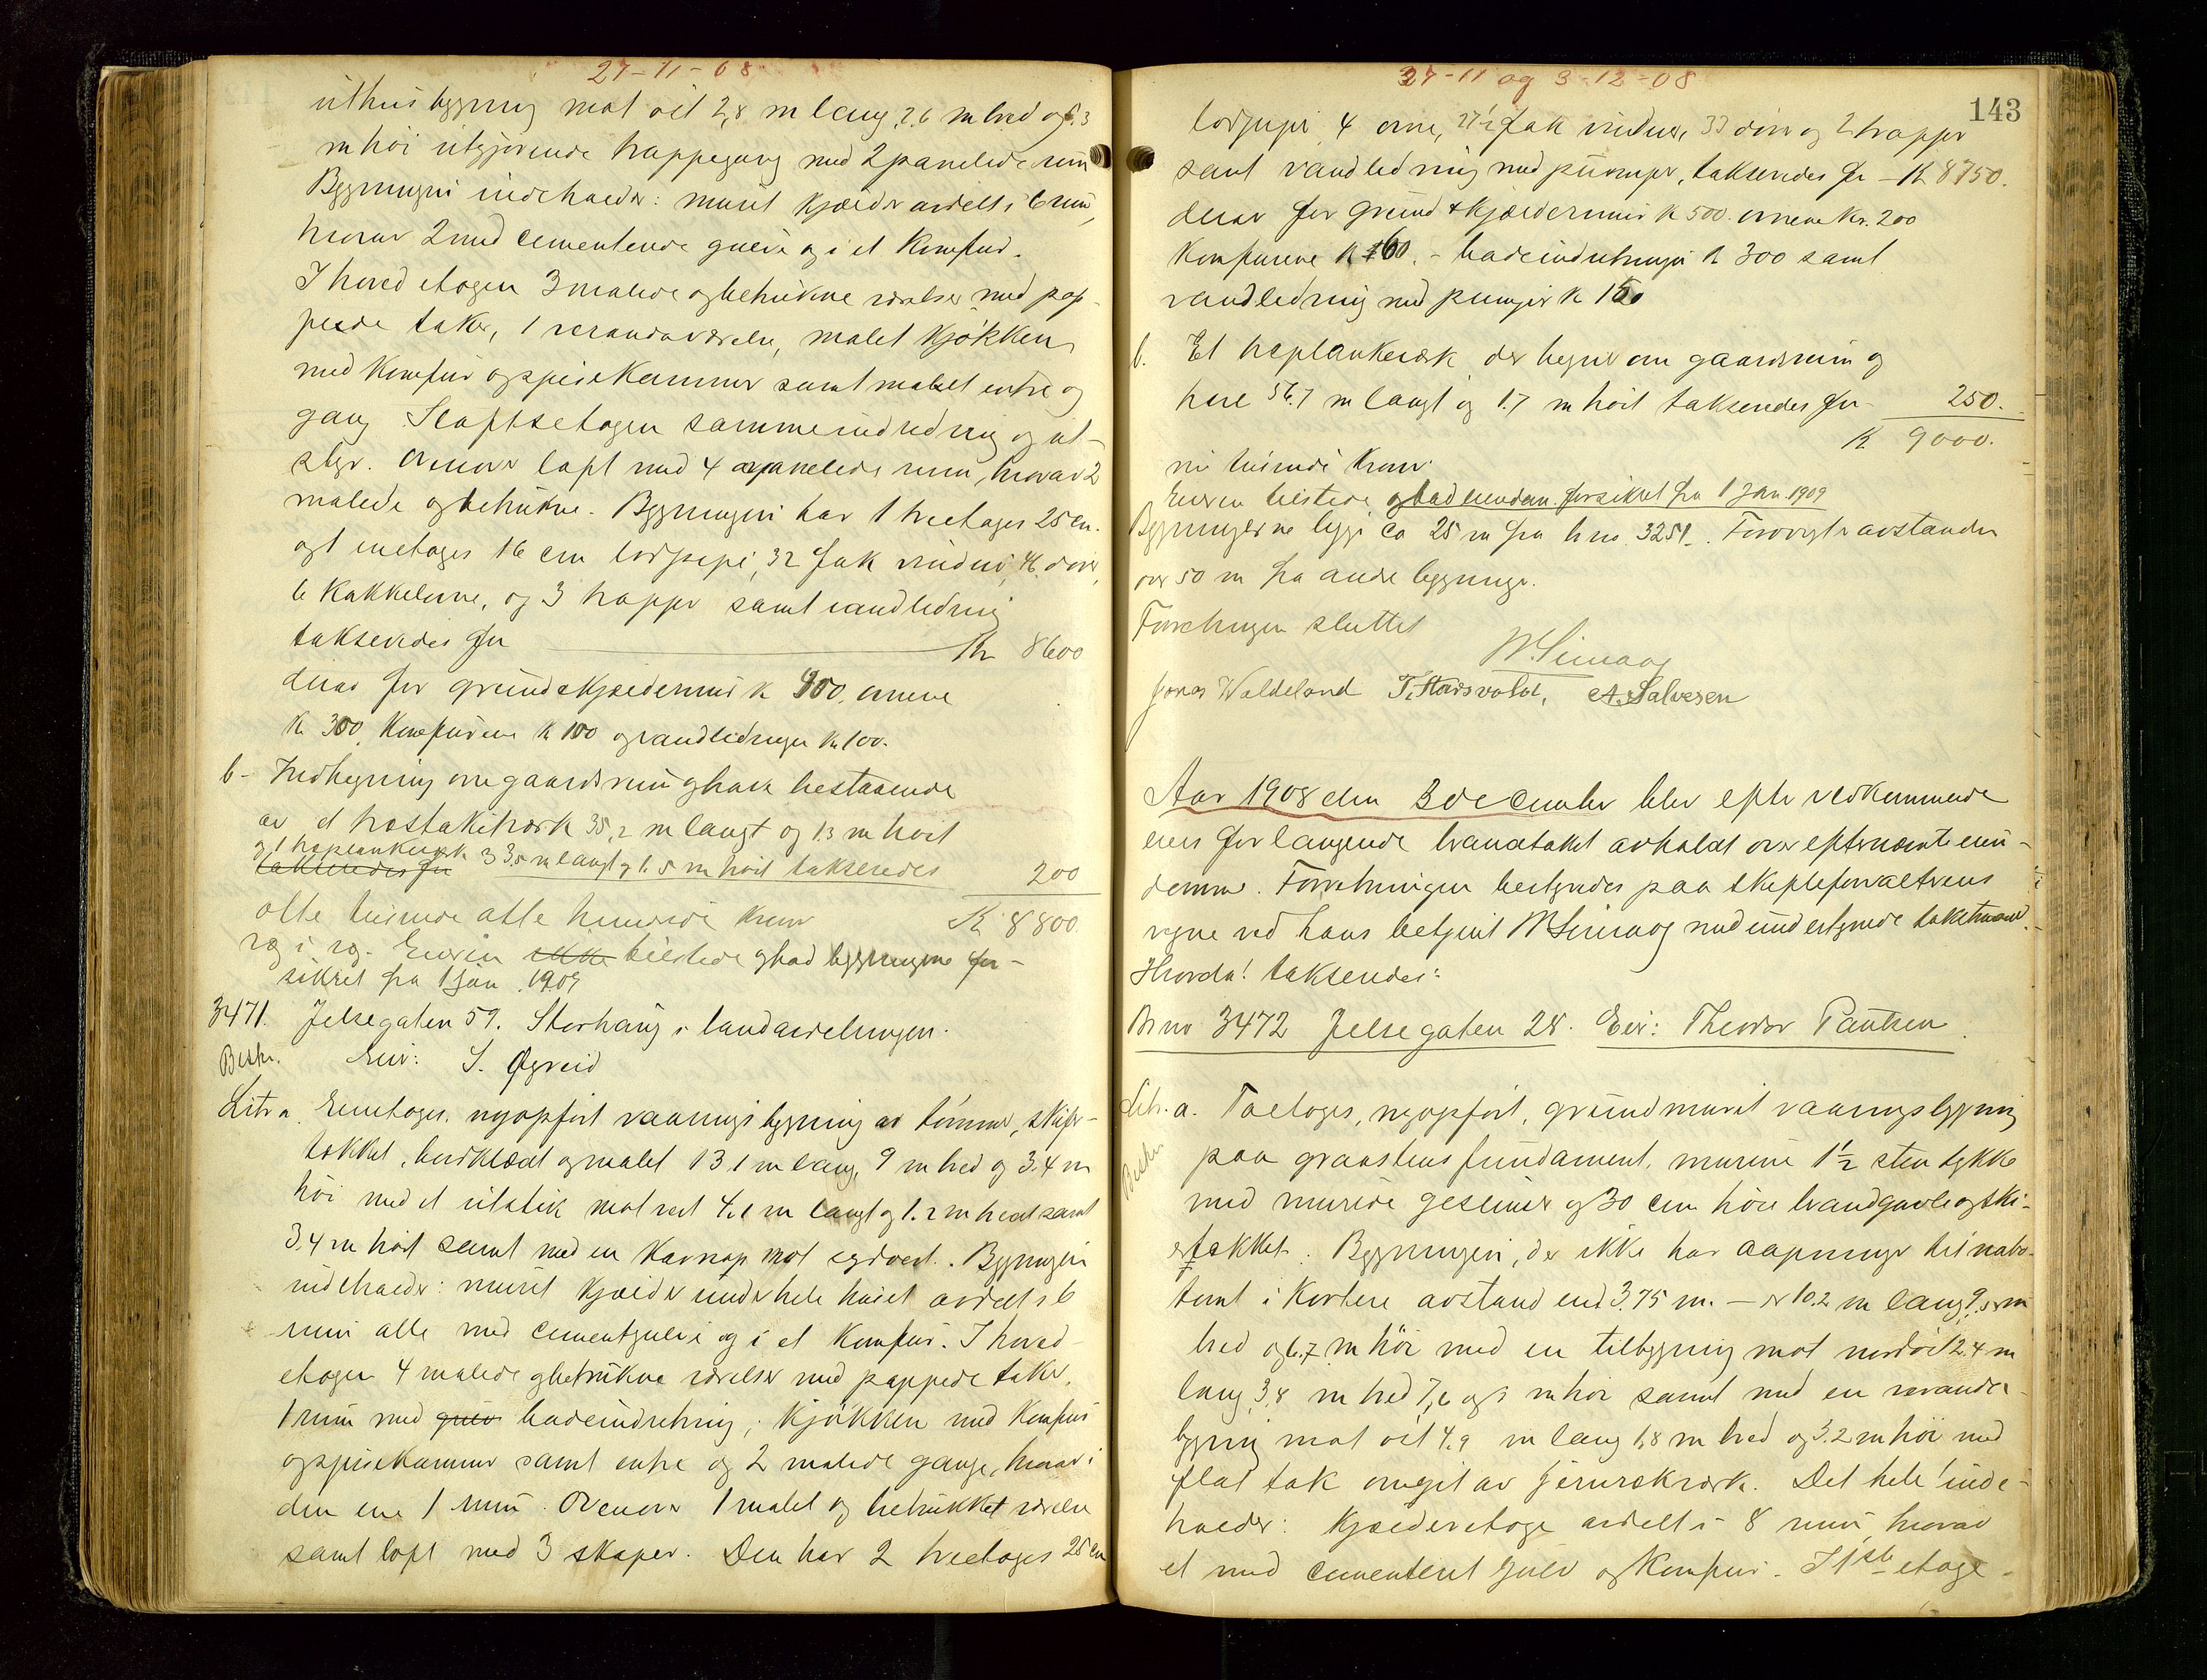 27-11-08
uthusbygning mot öst 2,8 m lang, 2.6 m bred og 6.3
m höi utgjörende trappegang med 2 panelede rum
Bygningen indeholder: muret kjælder avdelt i 6 rum,
hvorav 2 med cementerede gulve og i et Komfur.
I hovedetagen 3 malede og betrukne værelser med pap-
pede taker, 1 verandaværelse, malet Kjøkken
med Komfur og spisekammer samt malet entre og
gang. Loftsetagen samme indredning og ut-
styr. Ovenover loft med 4 panelede rum, hvorav 2
malede og betrukne. Bygningen har 1 treetages 25 cm.
og 1 enetages 16 cm lodpipe, 32 fak vinduer, 46 döre,
6 Kakkelovne, og 3 trapper samt vandledning
takseredes for Kr 8600
derav for grund & kjældermur k 900. ovnene
k 300 Komfurene k 100 og vandledningen kr 100.
b- Indhegning om gaardsrum og have bestaaende
av et træstakitværk 35,2 m langt og 1.3 m höit
og 1 træplankeværk 33,5 m langt og 1.5 m höit takseredes
takseredes for 200
otte tusinde otte hundrede kroner K 8800
Eieren ikke tilstede og bad bygningene for-
sikret fra 1 Jan. 1909
3471. Jelsegaten 59. Storhaug i landavdelingen.
Beskr. Eier: S. Øgreid
Litr a. Enetages, nyopført vaaningsbygning av tömmer, skifer-
tækket, bordklædt og malet 13.1 m lang, 9 m bred og 3.4 m
höi med et utstik mot vest 4.1 m langt og 1.2 m bredt samt
3.4 m höit samt med en Karnap mot sydvest. Bygningen
indeholder: muret kjælder under hele huset avdelt i 6
rum alle med cementgulve og i et Komfur. I hoved-
etagen 4 malede og betrukne værelser med pappede taker,
1 rum med gulv badeindretning, Kjøkken med Komfur
og spisekammer samt entre og 2 malede gange, hvorav i
den ene 1 rum. Ovenover 1 malet og betrukket værelse
samt loft med 3 skaper. Den har 2 treetages 25 cm
27-11 og 3-12-08
143
lodpiper, 4 ovne, 27½ fak vinduer, 33 döre og 2 trapper
samt vandledning med pumper, takseredes for - K 8750.
derav for grund & kjældermur k 500. ovnene Kr. 200
Komfurene k 160. - badeindretningen k 300 samt
vandledning med pumper k 150
b. Et træplankeværk der hegner om gaardsrum og
have 56.7 m langt og 1.7 m höit takseredes for 250.
K 9000.
ni tusinde Kroner.
Eieren tilstede og bad eiendom. forsikret fra 1 Jan. 1909
Bygningerne ligge ca 25 m fra br no. 3251. Forövrigt avstanden
over 50 m fra andre bygninger.
Forretningen sluttet
M. Simaas
Jonas Waldeland T. Hausvold, A. Salvesen
Aar 1908 den 3 december blev efter vedkommende
eiers forlangende brandtakst avholdt over efternævnte eien-
domme. Forretningen bestyredes paa skifteforvalterens
vegne ved hans betjent M Simaas med undertegnede takstmænd.
Hvorda! takseredes:
Br no 3472 Jelsegaten 28. Eier: Theodor Pauhsen.
Litr. a. Toetages, nyopført, grundmuret vaaningsbygning
Beskr.
paa graastens fundament, murene 1½ sten tykke
med murede gesimser og 30 cm höie brandgavle og ski-
fertækket. Bygningen, der ikke har aapninger til nabo-
tomt i kortere avstand end 3.75 m. — er 10.2 m lang, 9.5 m
bred og 6.7 m höi med en tilbygning mot nordöst 2.4 m
lang, 3.8 m bred 7,6 m höi samt med en veranda-
bygning mot öst 4.9 m lang 1,8 m bred og 3.2 m höi med
flat tak omgit av jernrækværk. Det hele inde-
holder: Kjælderetage avdelt i 8 rum, hvorav
et med cementeret gulv og Komfur. I 1ste etage